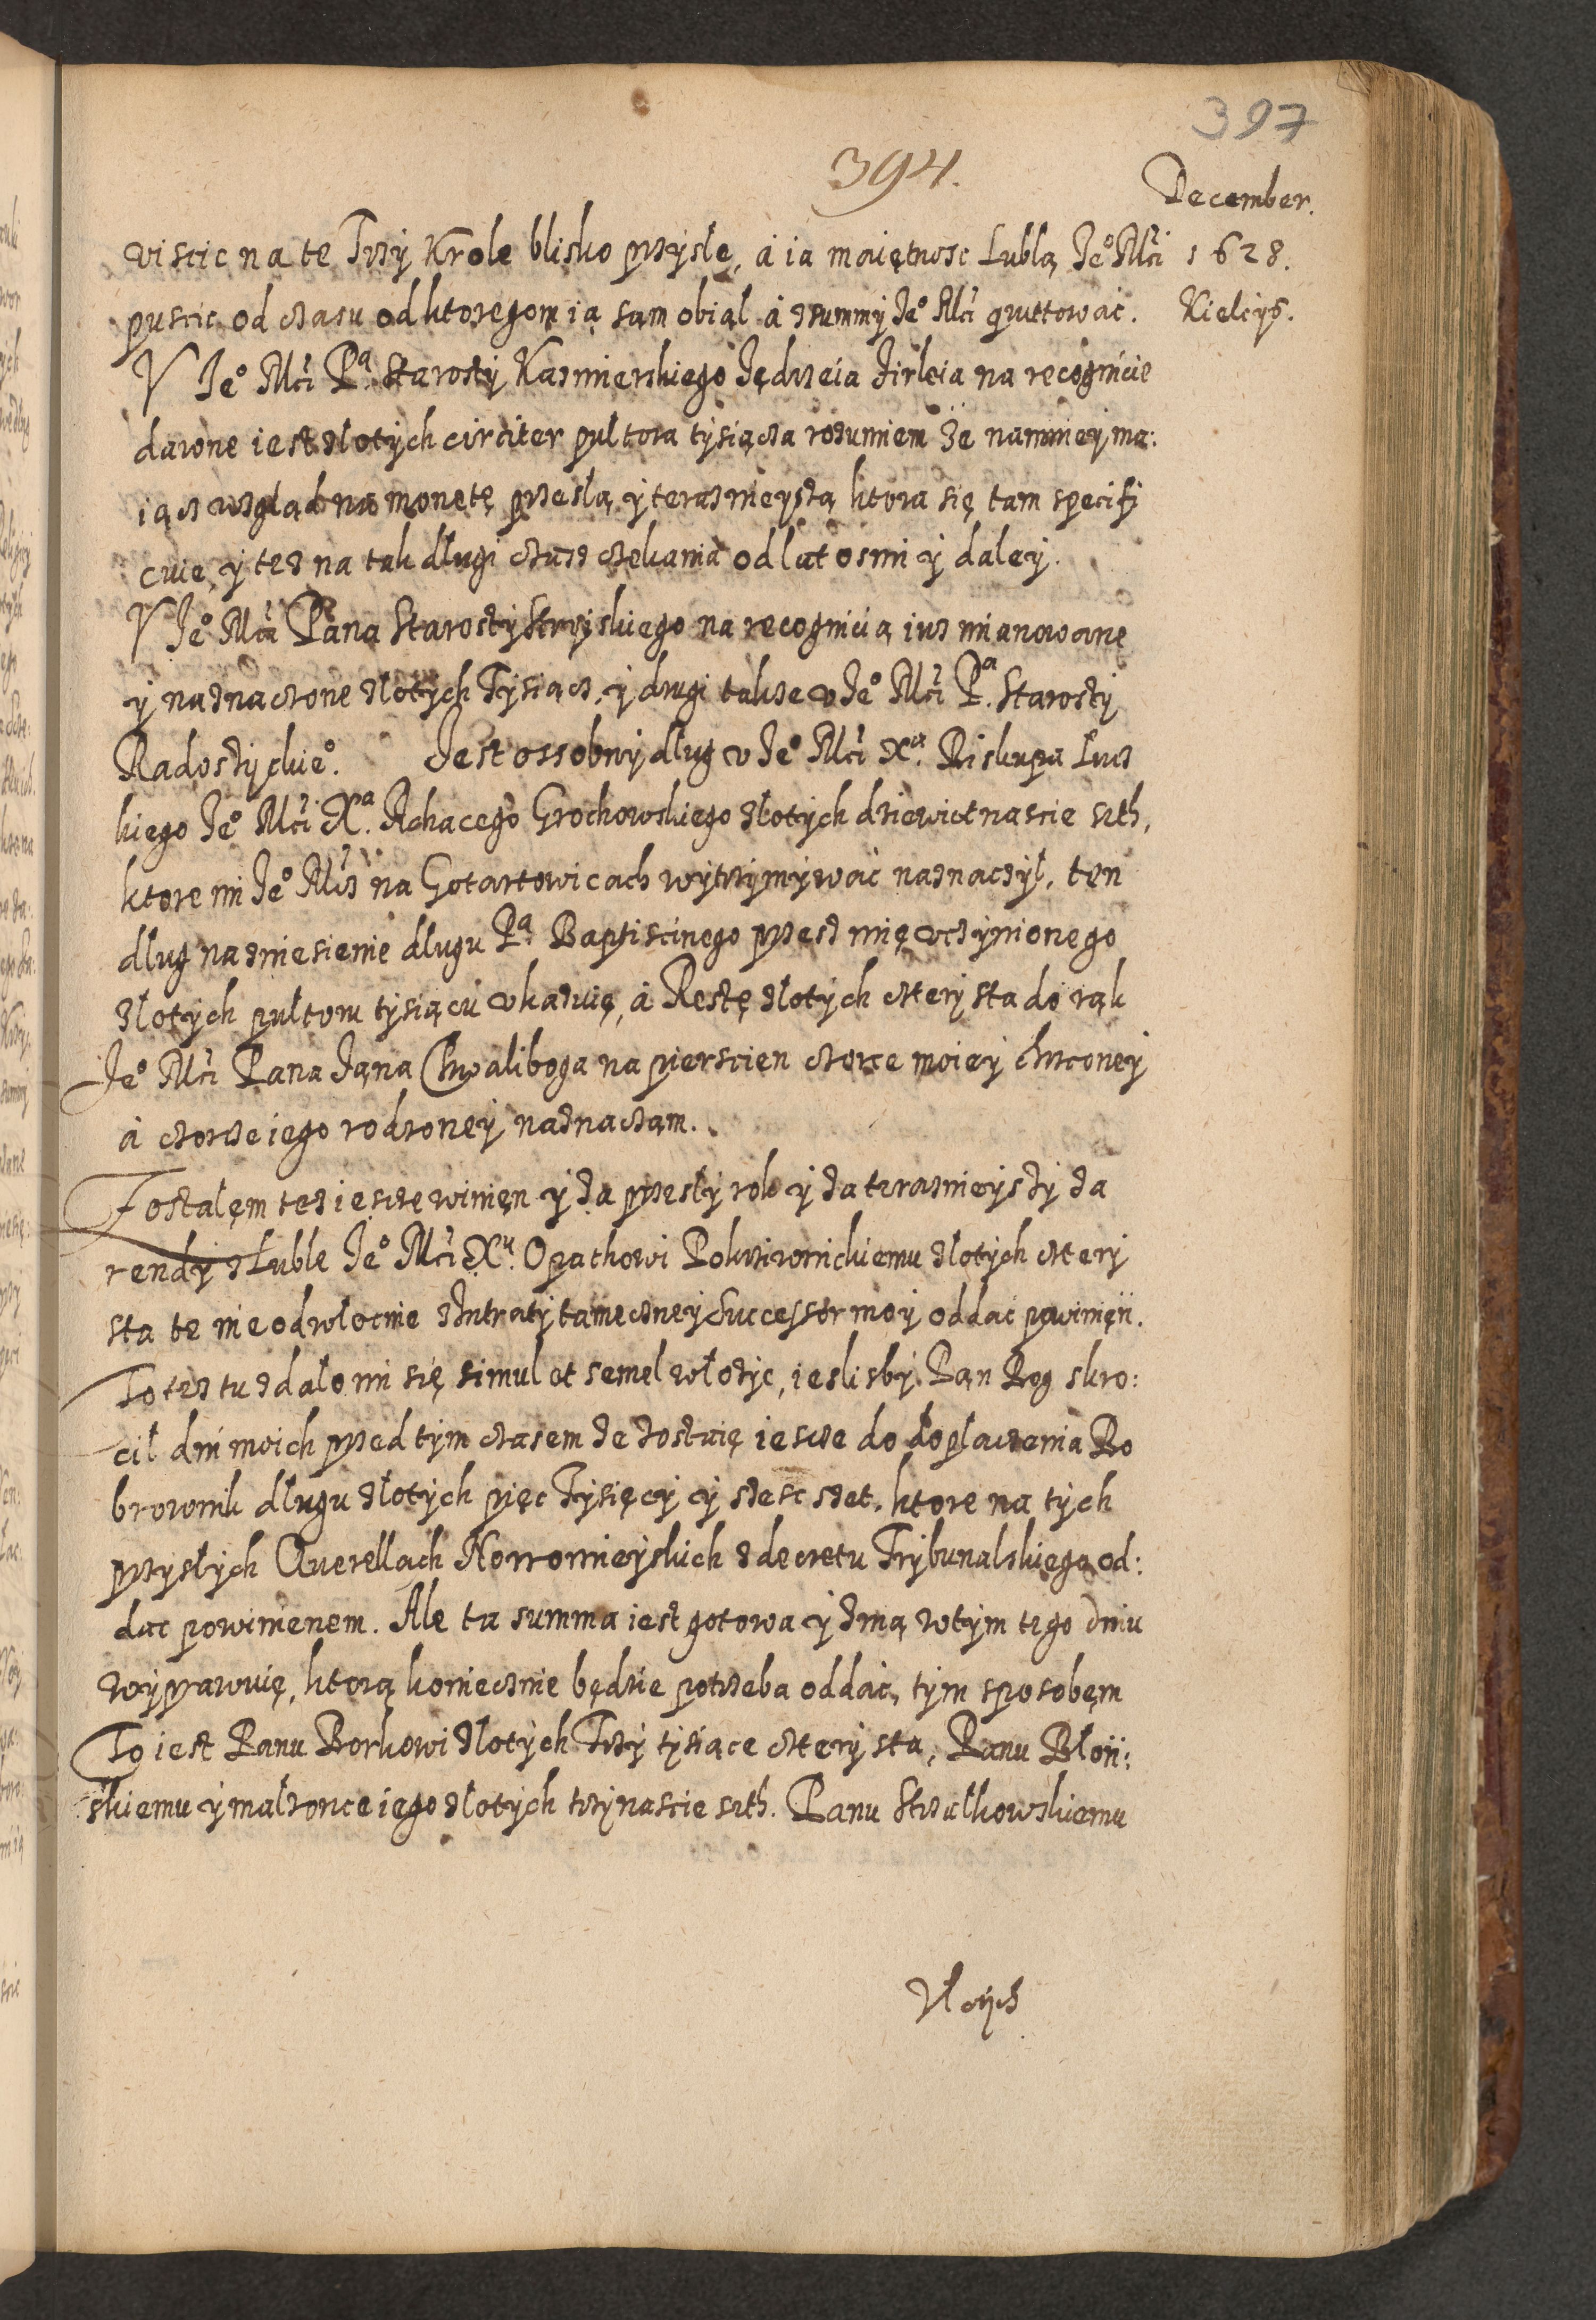 397
394.
December.
viscic na te Trzy Krole blisko przysłe, á ia maiętnosc Lublą Je° Mći 1628.
puscic od czasu od ktoregom ią sam obiął á z summy Je° Mći quittować. Kielcys.
V Je° Mći Pᵃ. Starosty Kazmierskiego Jędrzeia Firleia na recognicie
dawone iest złotych circiter pułtora tysiącza rozumiem że namniey ma:
iącz wzgląd na monetę przesłą, y terazmieyszą ktora się tam specifi
cuie, y tez na tak długi czasz czekania od lat osmi y daley.
V Je° Mći Pana Starosty Stryiskiego na recognicią iuz mianowane
y naznaczone złotych Tysiącz, y drugi takze v Je° Mći Pᵃ. Starosty
Radoszyckie°. Jest ossobny dług v Je° Mći Xᵃ. Biskupa Łuc
kiego Je° Mći Xᵃ. Achacego Grochowskiego złotych dziewietnascie seth,
ktore mi Je° Mćz na Gotartowicach wytrzymywać naznaczył, ten
dług na zniesienie długu Pᵃ. Baptiscinego przesz mię vczynionego
złotych pułtoru tysiącu vkazuię, á Resztę złotych cztery sta do rąk
Je° Mći Pana Jana Chwaliboga na pierscien czorce moiey chrzconey
á czorze iego rodzoney naznaczam.
Zostałem tez ieszcze winien y za przesły rok y za terazmieyszy za
rendy z Luble Je° Mći Xᵘ. Opathowi Pokrziwnickiemu złotych cztery
sta te nieodwłocnie z Intraty tameczney Successor moy oddac powinięn.
To tez tu zdało mi się simul et semel włozyc, ieslisby Pan Bog skro:
cił dni moich przed tym czasem ze zostaię ieszcze do dopłaczenia Bo
brownik długu złotych pięc Tysięcy y szesc szet, ktore na tych
przyszłych Querellach Nowomieyskich z decretu Trybunalskiego od:
dac powinienem. Ale ta summa iest gotowa y z nią w tym tego dniu
wyprawuię, ktorą koniecznie będzie potrzeba oddać, tym sposobem
To iest Panu Borkowi złotych Trzy tysiące cztery sta, Panu Błoń:
skiemu y małzonce iego złotych trzynascie seth. Panu Strzałkowskiemu